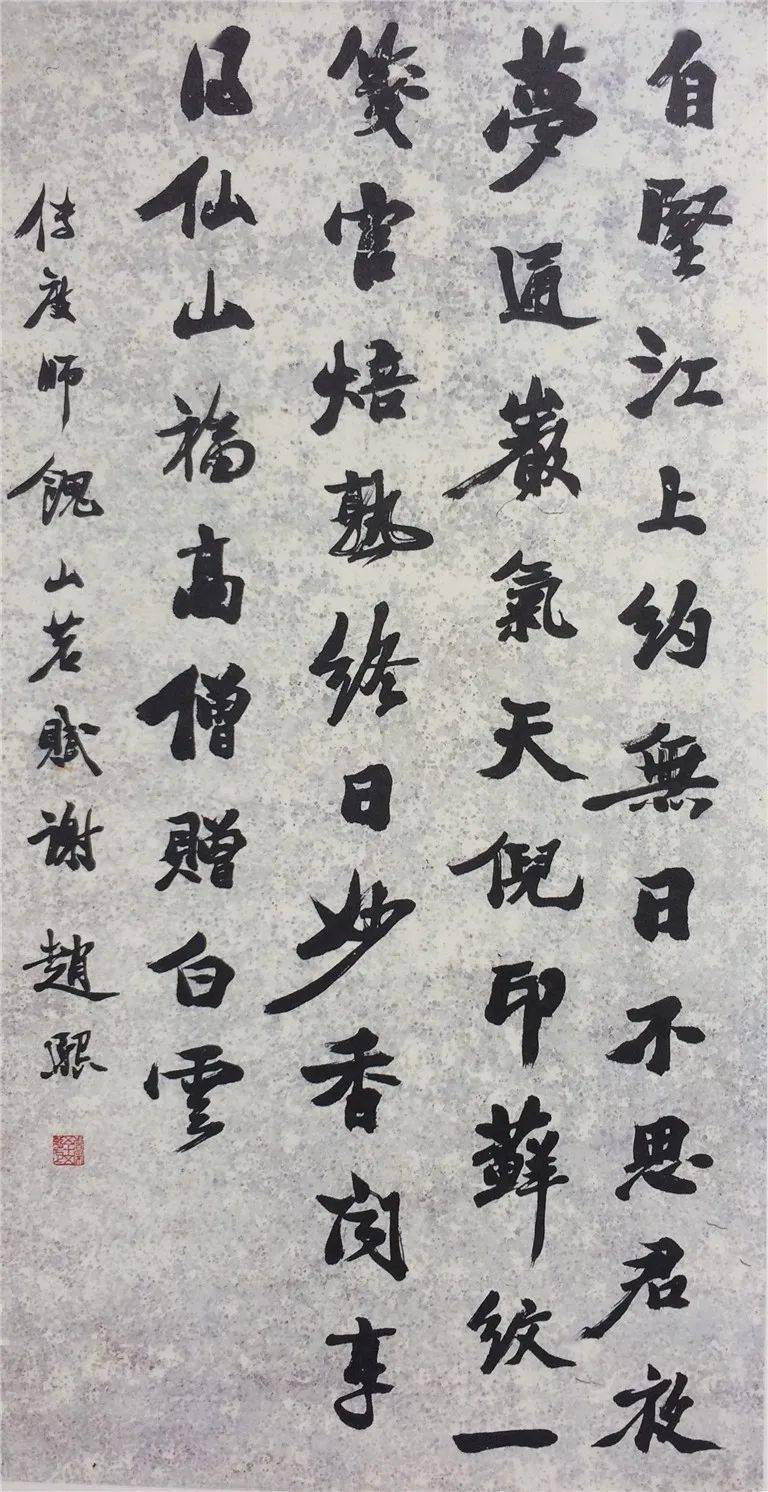 自堅江上約無日不思君夜
夢通巖氣天倪印蘚紋一
箋官焙熟終日妙香聞享
同仙山福高僧贈白雲
傳度師餽山茗賦謝 趙熙